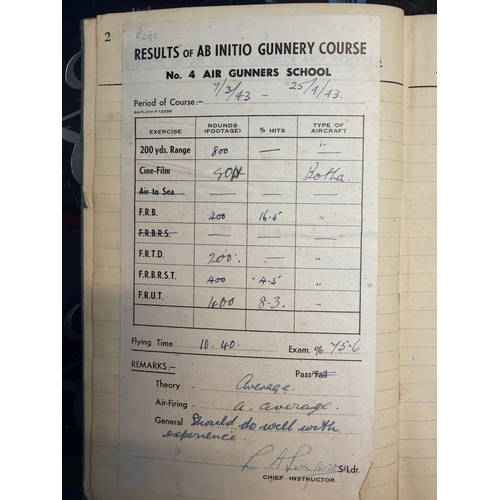 2
RESULTS OF AB INITIO GUNNERY COURSE
No. 4 AIR GUNNERS SCHOOL
Period of Course:- 7/3/43 - 25/4/43.
GATLOW P 13235
EXERCISE ROUNDS (FOOTAGE) % HITS TYPE OF AIRCRAFT
200 yds. Range 800 — "
Cine-Film Botha.
Air to Sea — — —
F.R.B. 400 16.5 "
F.R.B.R.S. — — —
F.R.T.D. 200. — "
F.R.B.R.S.T. 400 4.5 "
F.R.U.T. 400 8.3. "
Flying Time 10.40. Exam. % 75.6
REMARKS:- Pass/Fail
Theory Average.
Air-Firing a. average.
General Should do well with
experience.
S/Ldr.
CHIEF INSTRUCTOR.